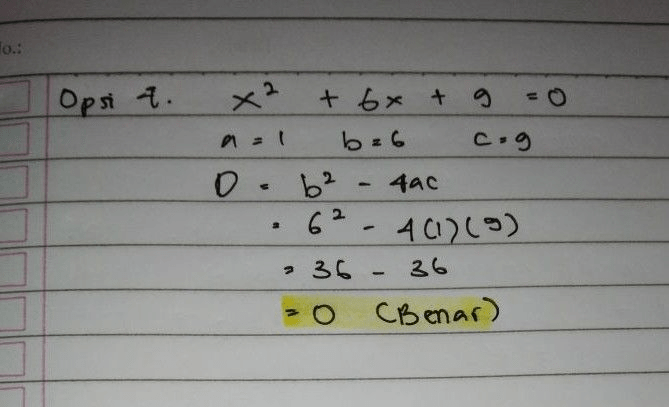 o.:
Opsi 7. x² + 6x + 9 = 0
a = 1 b = 6 c = 9
D = b² - 4ac
= 6² - 4(1)(9)
= 36 - 36
= 0 (Benar)